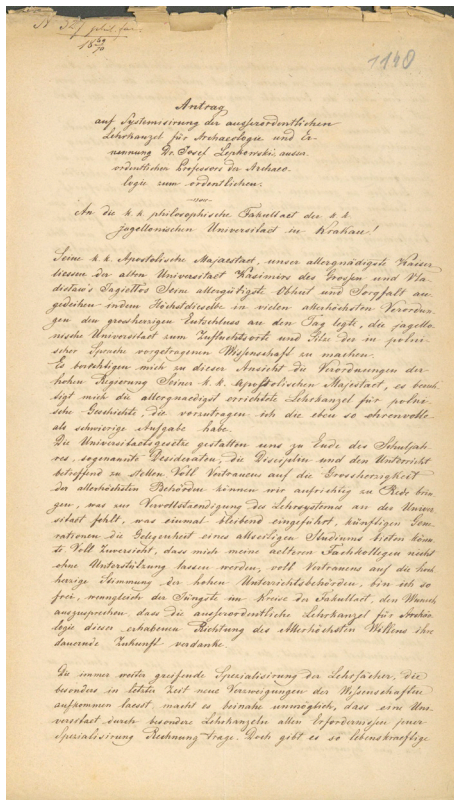 N 327 phil. fac.
18 69/70
1140
Antrag
auf Systemisirung der ausserordentlichen
Lehrkanzel für Archaeologie und Er-
nennung Dr. Josef Lepkowski, ausser-
ordentlichen Professors der Archaeo-
logie zum ordentlichen.
An die k. k. philosophische Fakultaet der k. k.
jagellonischen Universitaet in Krakau!
Seine k. k. Apostolische Majestaet, unser allergnädigste Kaiser
liessen der alten Universitaet Kasimirs des Grossen und Vla-
dislaus Jagiellos Seine allergütigste Obhut und Sorgfalt an-
gedeihen indem Höchstdieselbe in vielen allerhöchsten Verordnun-
gen den grossherzigen Entschluss an den Tag legte, die jagello-
nische Universitaet zum Zufluchtsorte und Sitze der in polni-
scher Sprache vorgetragenen Wissenschaft zu machen.
Es berechtigen mich zu dieser Ansicht die Verordnungen der
hohen Regierung Seiner k. k. Apostolischen Majestaet, es berech-
tigt mich die allergnaedigst errichtete Lehrkanzel für polni-
sche Geschichte, die vorzutragen ich die eben so ehrenvolle
als schwierige Aufgabe habe.
Die Universitaetsgesetze gestatten uns zu Ende des Schuljah-
res, sogenannte Desideraten, die Disciplin und den Unterricht
betreffend zu stellen. Voll Vertrauens auf die Grossherzigkeit
der allerhöchsten Behörden können wir aufrichtig zu Rede brin-
gen, was zur Vervollstaendigung des Lehrsystems an der Univer-
sitaet fehlt, was einmal bleibend eingeführt, künftigen Gene-
rationen die Gelegenheit eines allseitigen Studiums bieten könn-
te. Voll Zuversicht, dass mich meine aelteren Fachkollegen nicht
ohne Unterstützung lassen werden, voll Vertrauens auf die hoch-
herzige Stimmung der hohen Unterrichtsbehörden, bin ich so
frei, wenngleich der Jüngste im Kreise der Fakultaet, den Wunsch
auszusprechen, dass die ausserordentliche Lehrkanzel für Archaeo-
logie dieser erhabenen Richtung des Allerhöchsten Willens ihre
dauernde Zukunft verdanke.
Die immer weiter greifende Spezialisirung der Lehrfächer, die
besonders in letzter Zeit neue Verzweigungen der Wissenschaften
aufkommen laesst, macht es beinahe unmöglich, dass eine Uni-
versitaet durch besondere Lehrkanzeln allen Erfordernissen jener
Spezialisirung Rechnung trage. Doch gibt es so lebenskraeftige